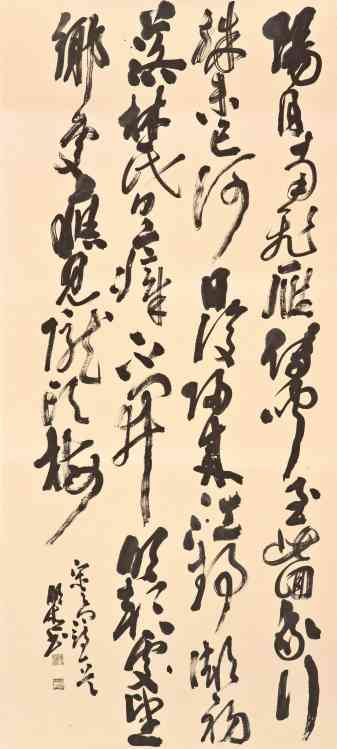 陽月南飛雁傳聞至此回我行
殊未已何日復歸來江靜潮初
落林昏瘴不開明朝望
鄉處應見隴頭梅
宋之問詩
書